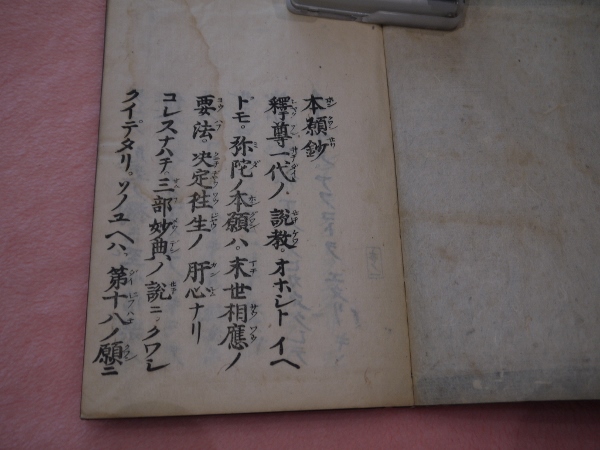 本願鈔
釋尊一代ノ説教。オホシトイヘ
ドモ。弥陀ノ本願ハ。末世相應ノ
要法。决定往生ノ肝心ナリ
コレスナハチ。三部妙典ノ説ニ。クワシ
クイデタリ。ソノユヘハ、第十八ノ願ニ